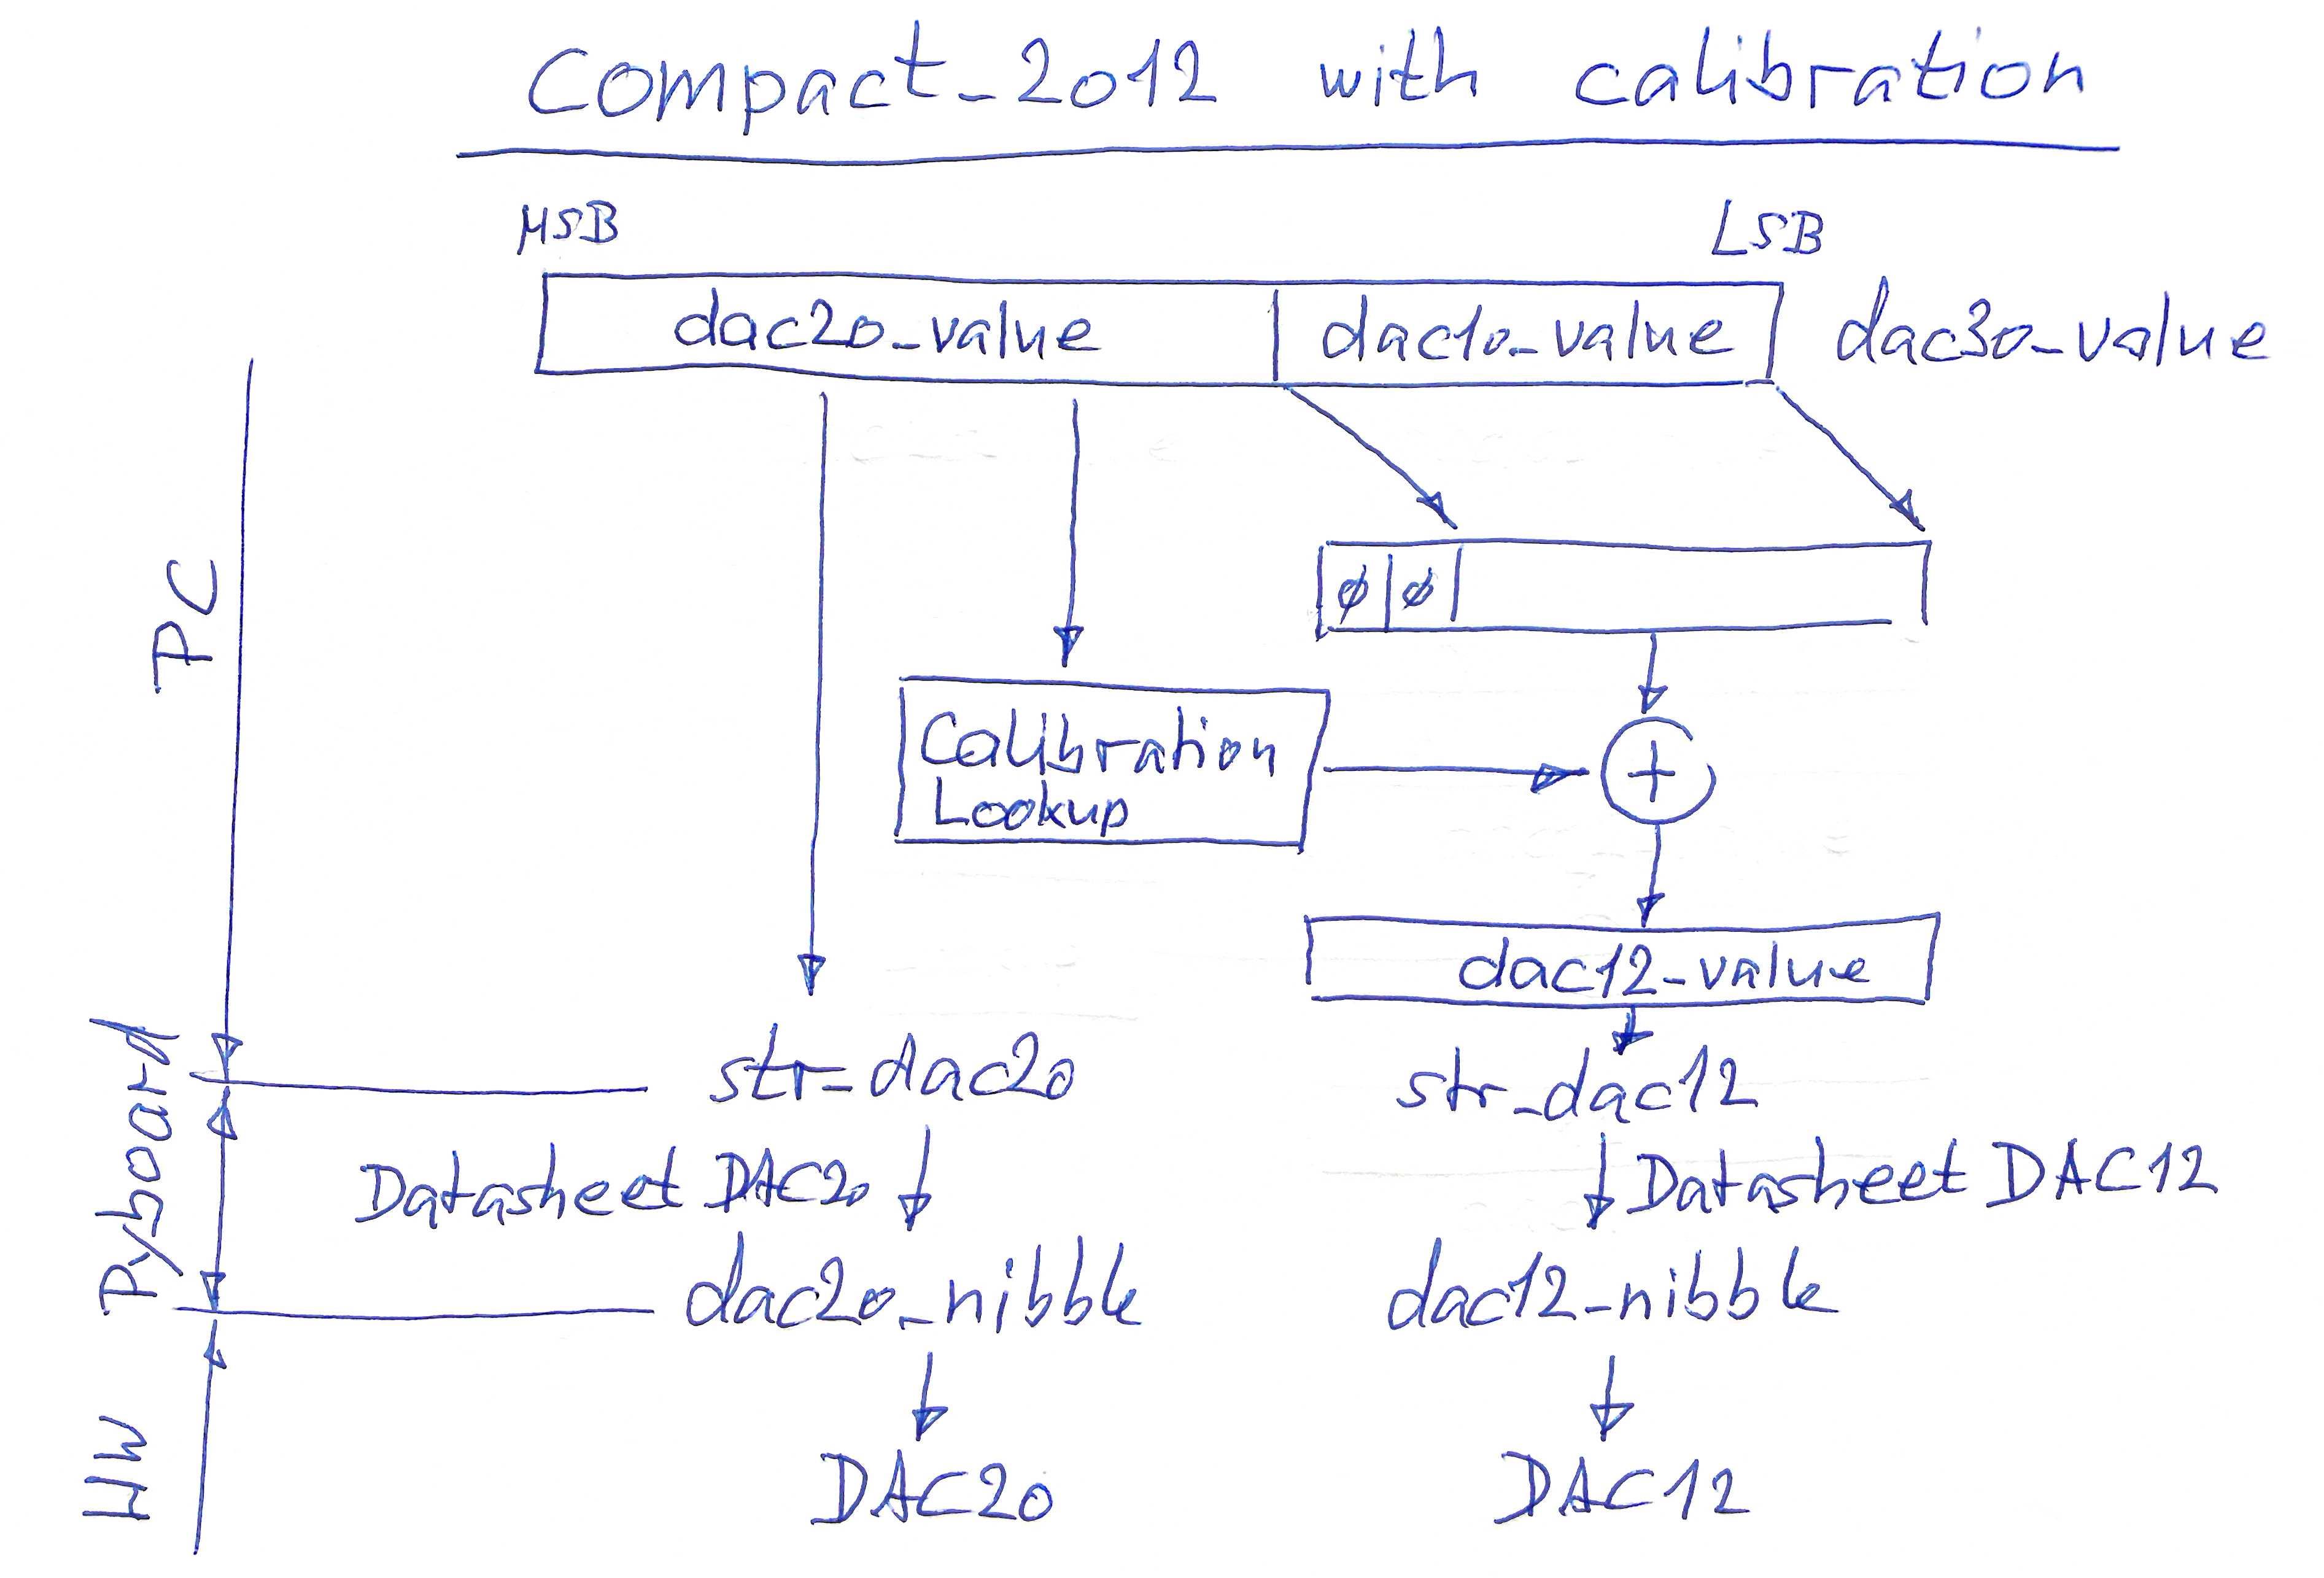 Compact_2012 with calibration
MSB LSB
dac20_value dac10_value dac30_value
PC
ø ø
Calibration
Lookup
dac12_value
str_dac20 str_dac12
Pyboard
Datasheet DAC20 Datasheet DAC12
dac20_nibble dac12_nibble
HW
DAC20 DAC12